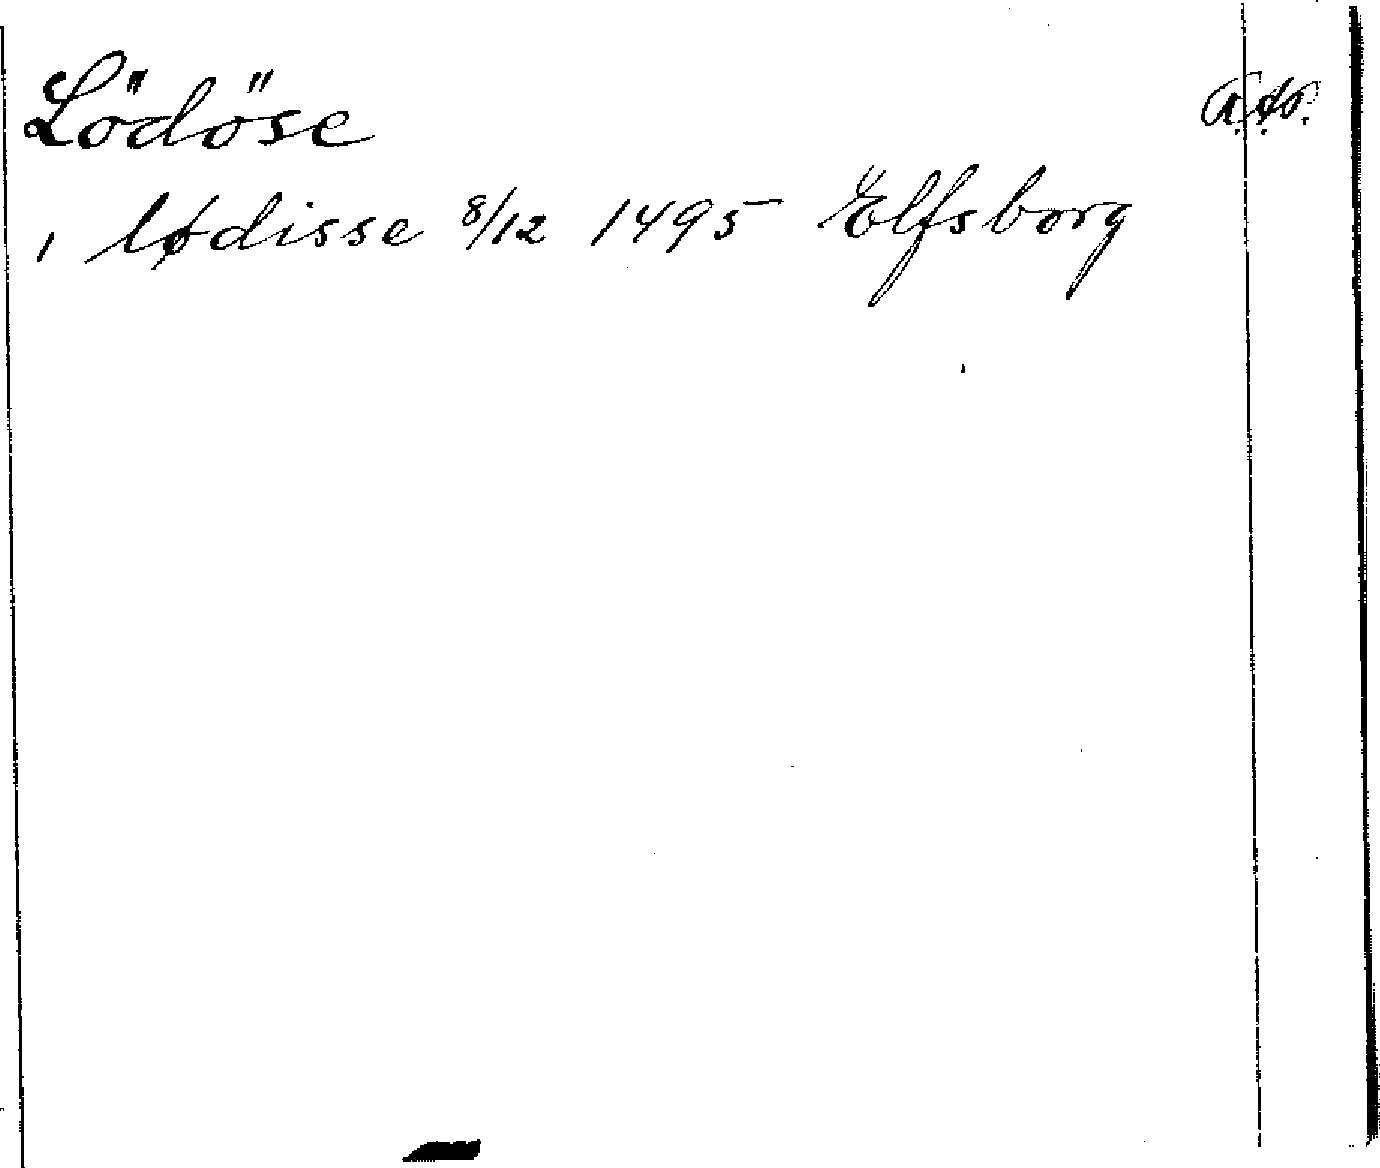 Lödöse
ı lødisse 8/12 1495 Elfsborg